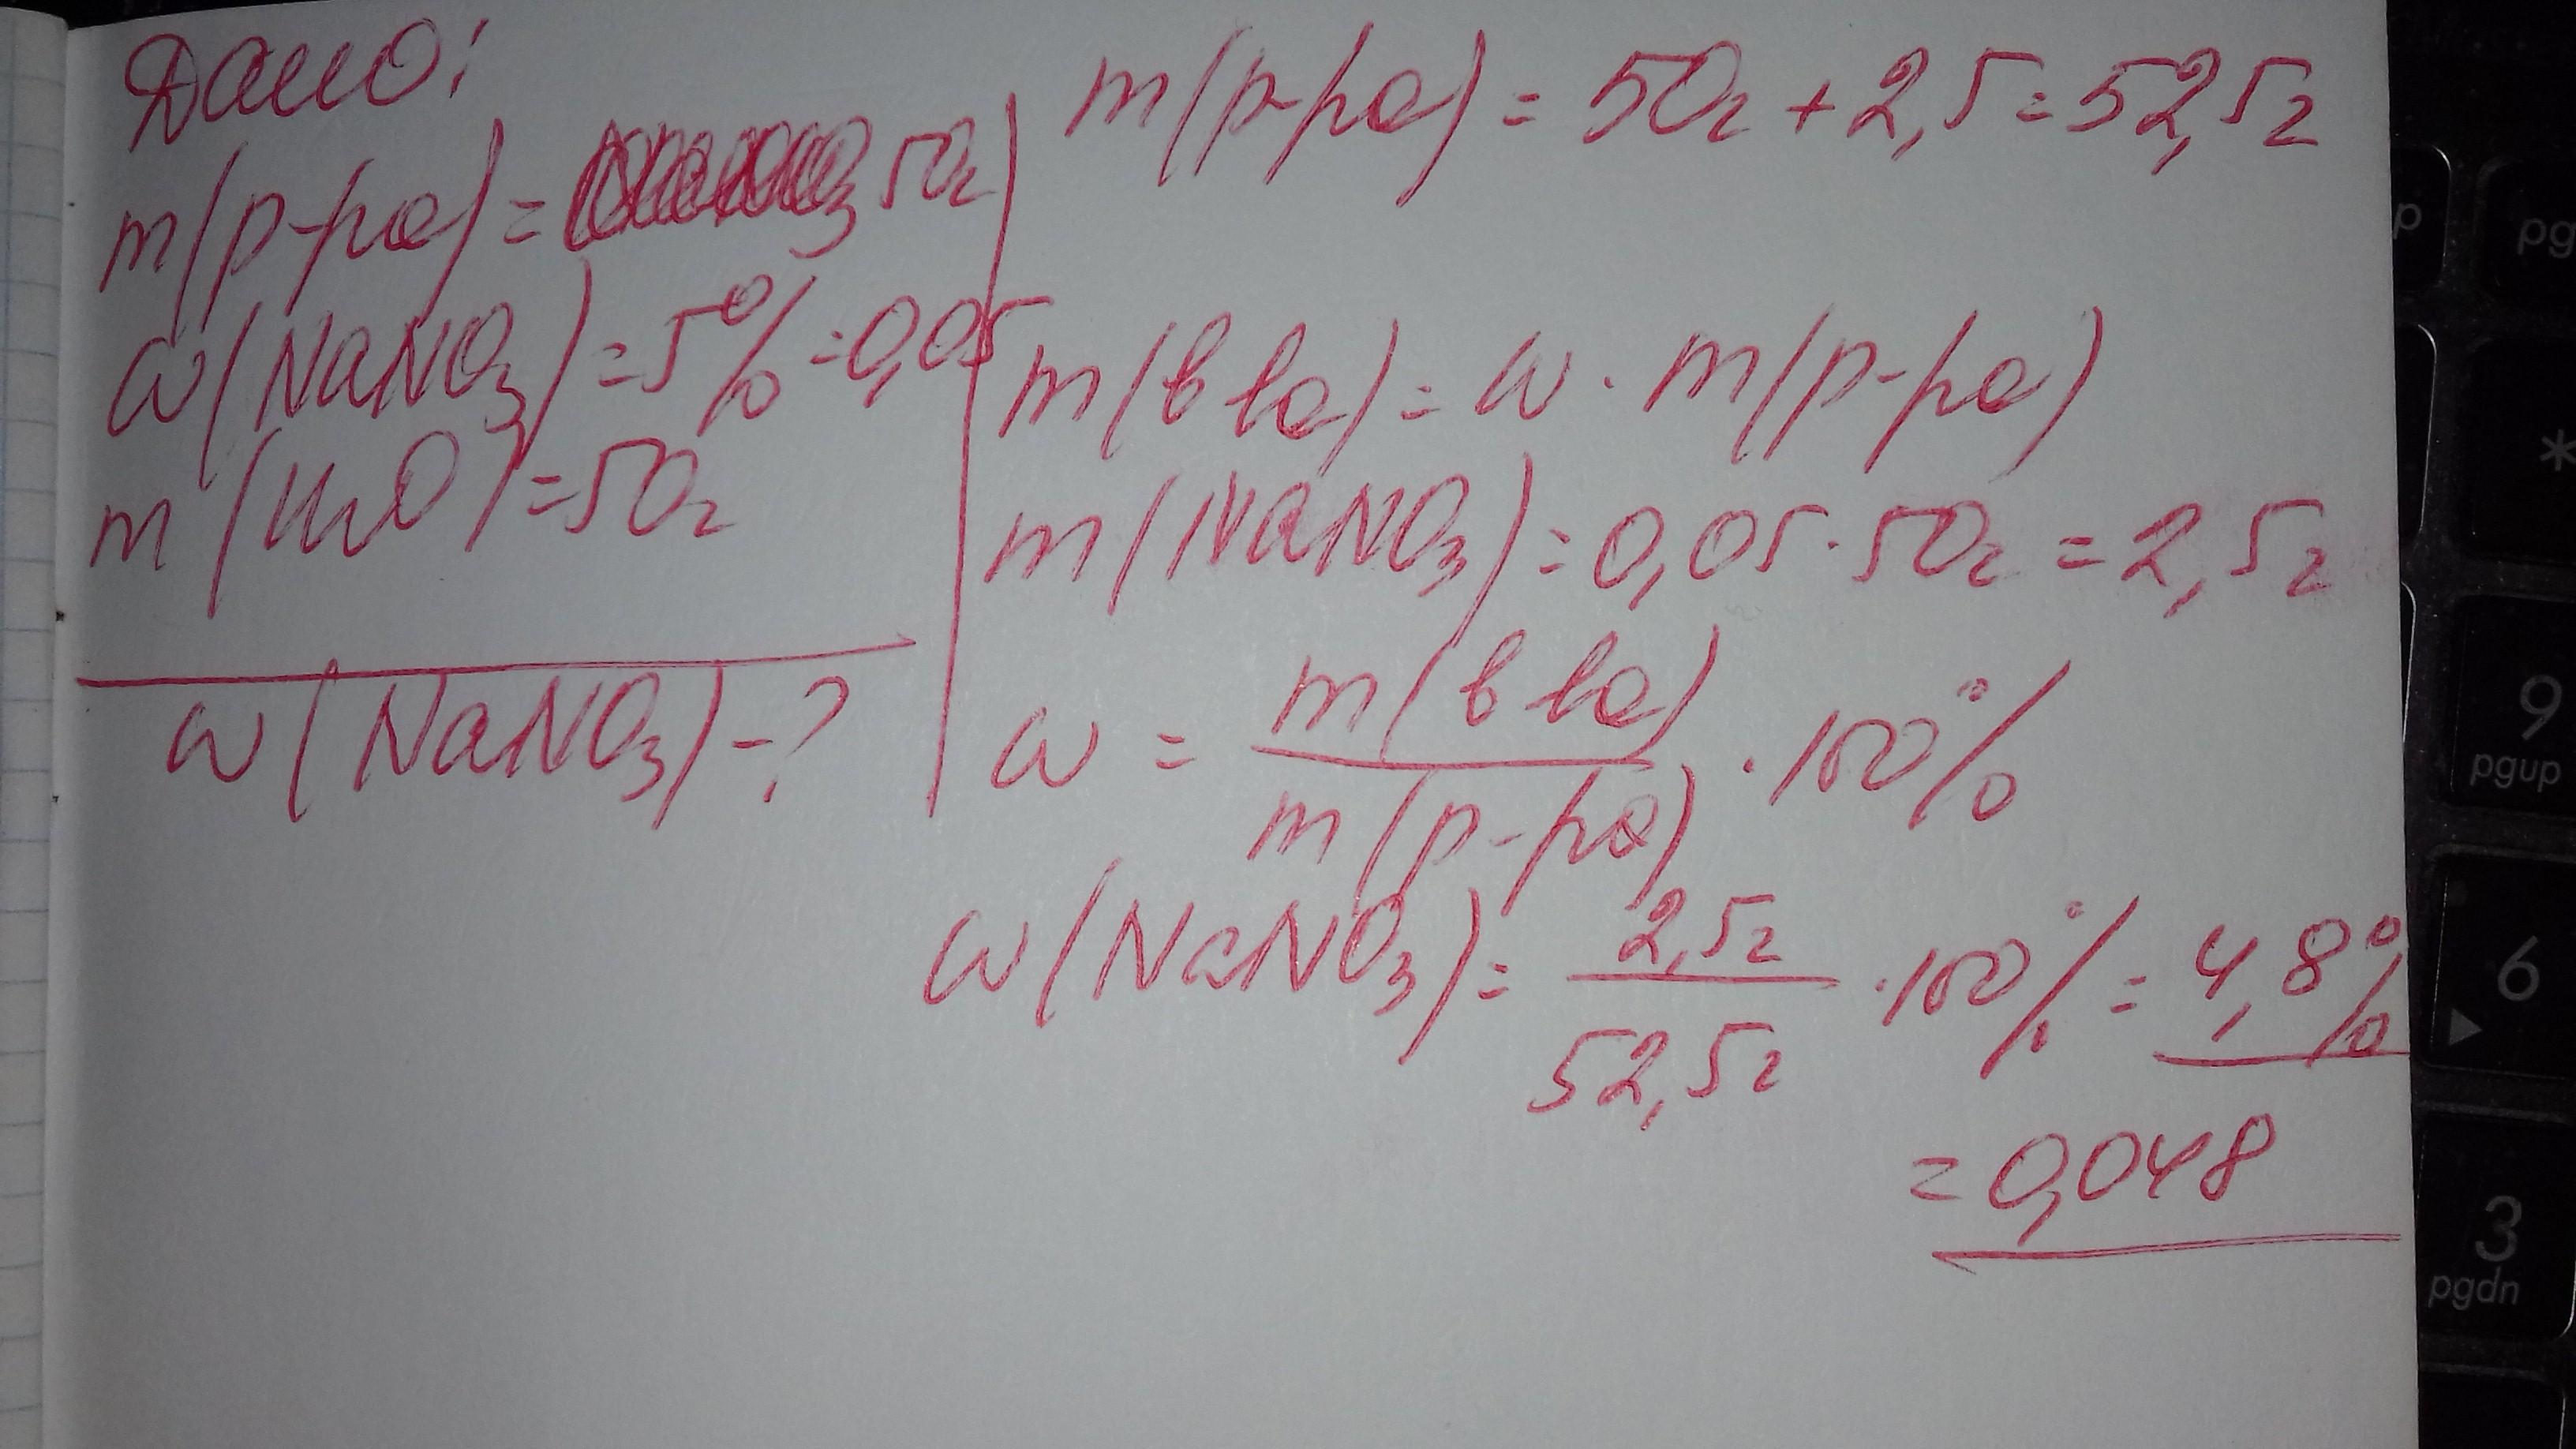 Дано:
m(р-ра) = 50г
ω(NaNO3) = 5% = 0,05
m(H2O) = 50г
ω(NaNO3) - ?
m(р-ра) = 50г + 2,5 = 52,5г
m(в ва) = ω · m(р-ра)
m(NaNO3) = 0,05 · 50г = 2,5г
ω = m(в ва) / m(р-ра) · 100%
ω(NaNO3) = 2,5г / 52,5г · 100% = 4,8%
= 0,048
p
pg
*
9
pgup
6
3
pgdn